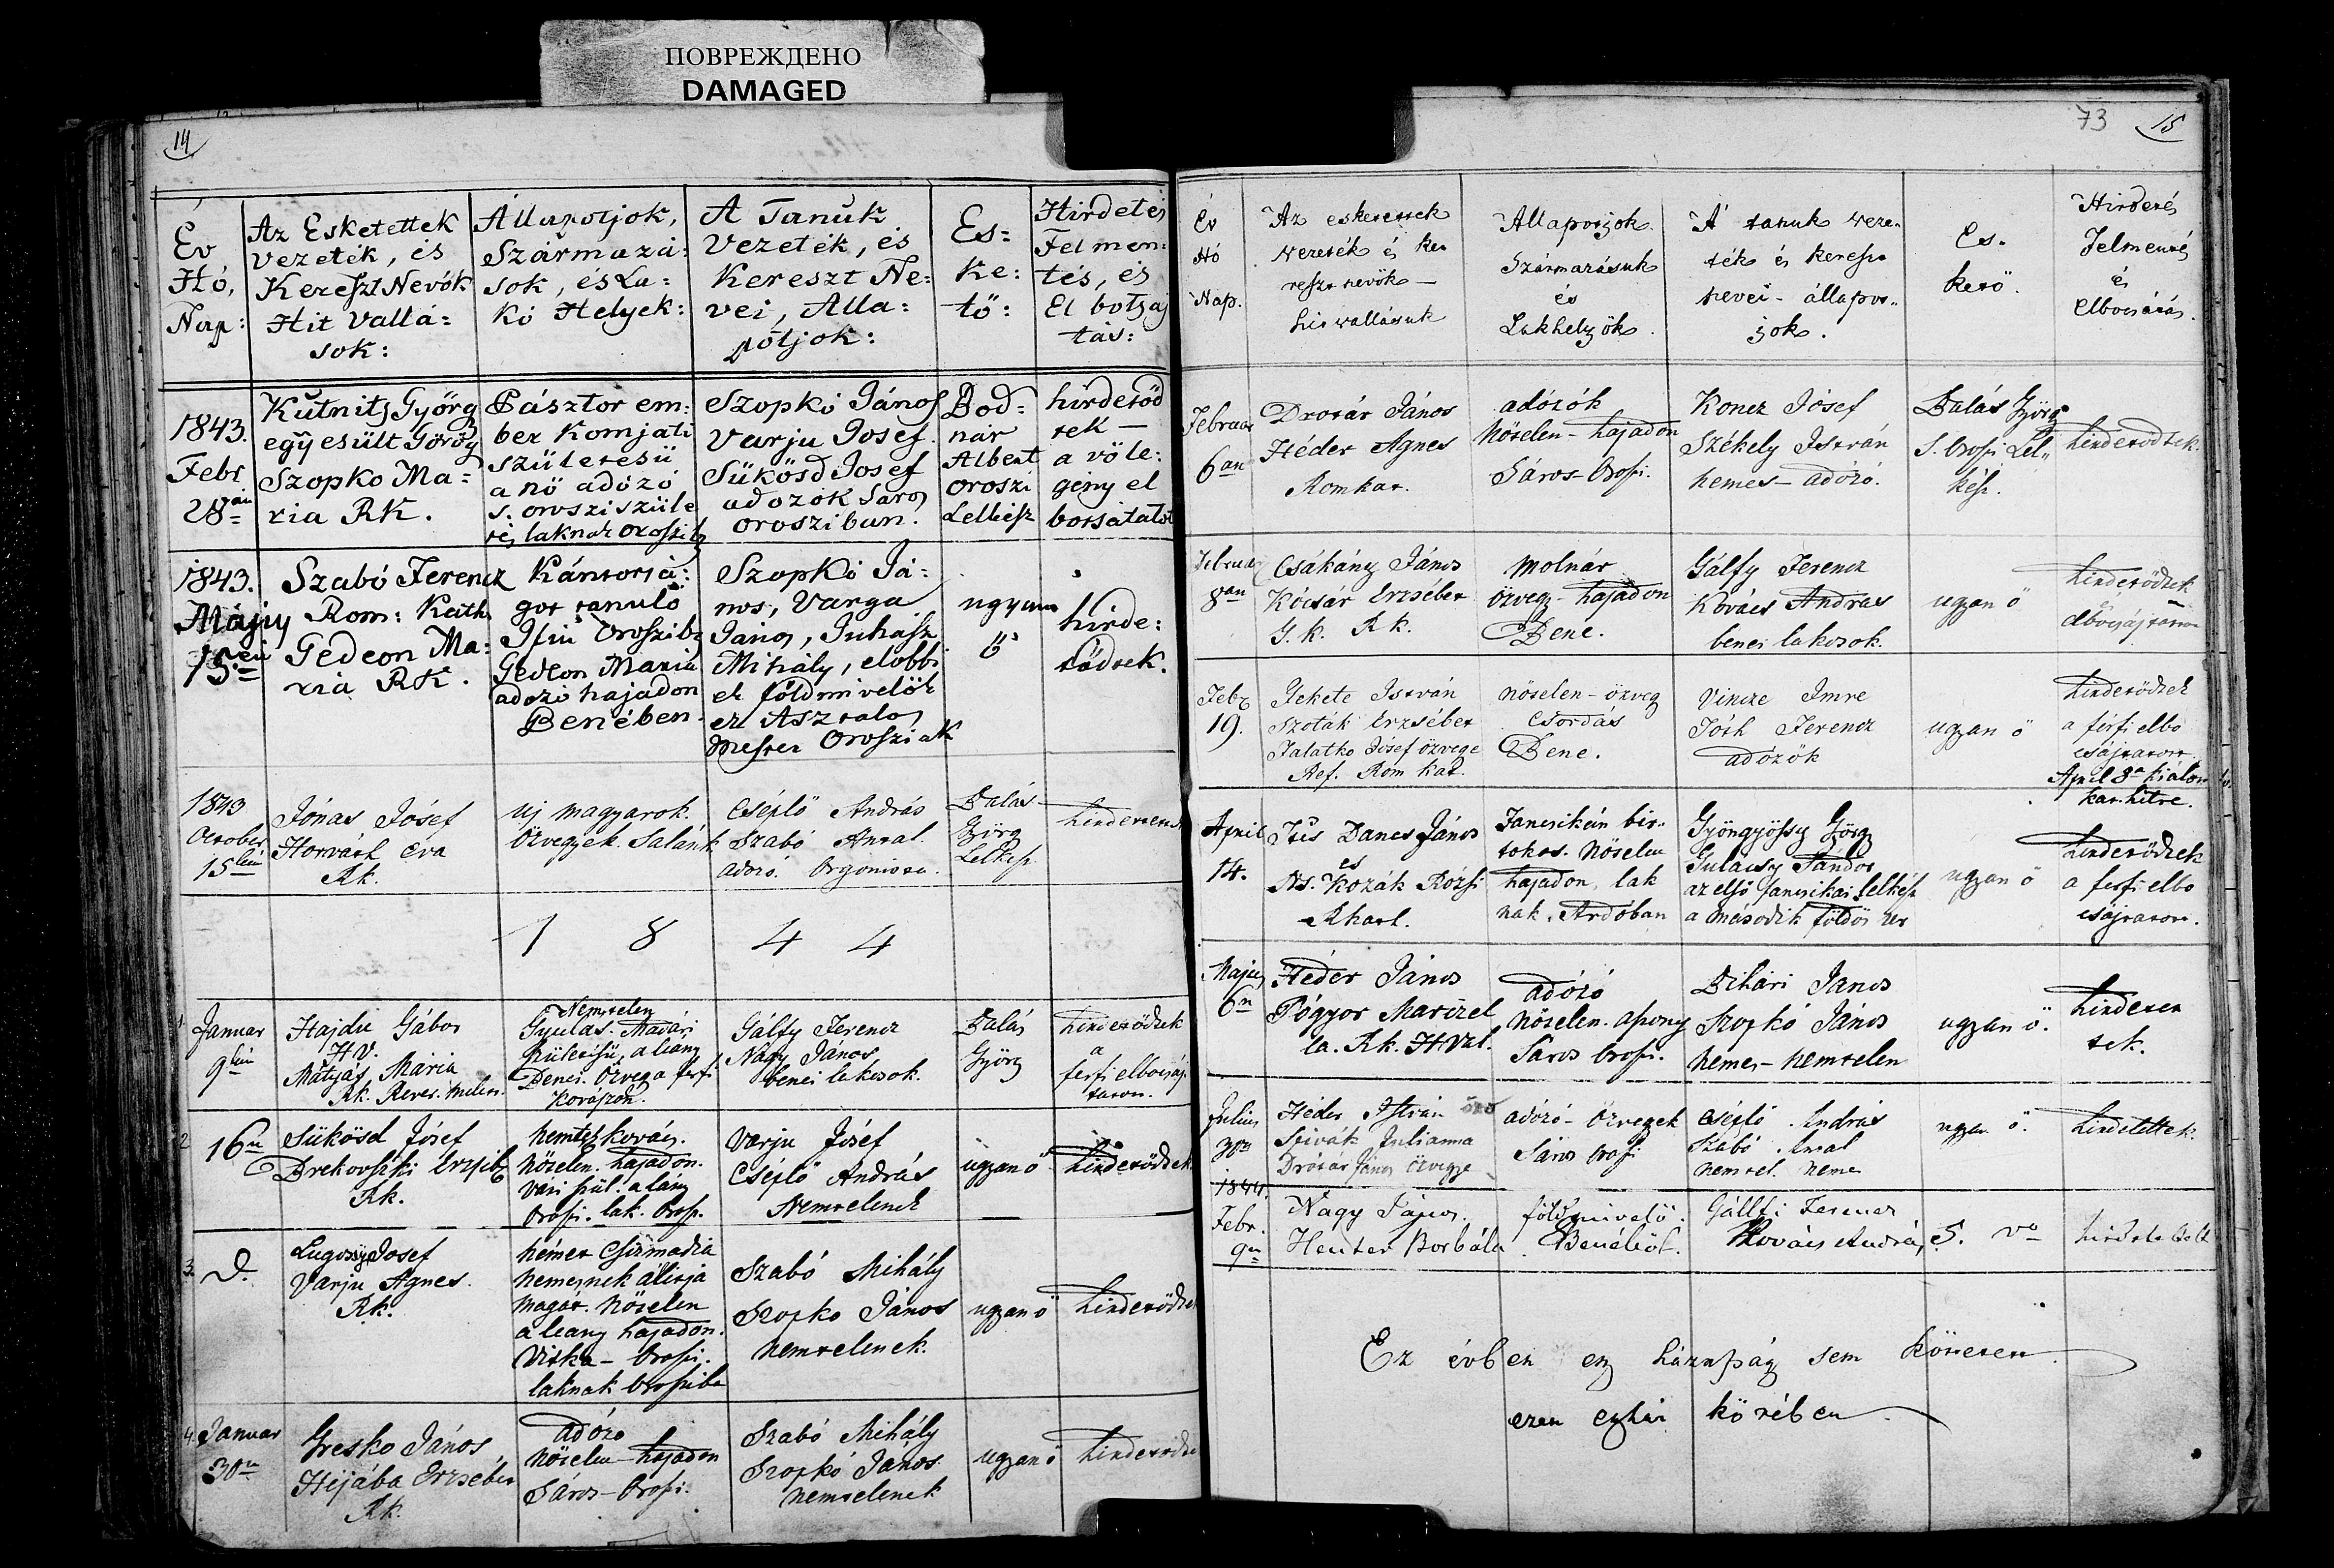 ПОВРЕЖДЕНО
DAMAGED
14
Ev
Hó,
Nap:
Az Eskettettek
Vezeték, és
Kereszt Nevök
Hit Vallá=
sok:
Állapotjok,
Származá=
sok, és La=
kó Helyek:
A Tanúk
Vezeték, és
Kereszt Ne=
vei, Alla=
potjok:
Es=
ke=
tő:
Hirdetés
Felmen=
tés, és
El botsaj
tás:
1843.
Febr
28án
Kutnits Györg
egÿesült Görög
Szopko Ma=
ria RK.
Pásztor em:
ber Komjati
születesü
a nö adózó
s. oroszi szüle
Szopkó János
Varju Josef.
Sükösd Josef
adozok Saros
orosziban.
Bod=
nár
Albert
oroszi
Lelkész
hírdetöd
tek —
a völe:
gény el
botsátatot
1843.
Májusy
15én
Szabó Ferencz
Rom: Kath.
Gedeon Ma:
ria RK.
Kántorsá:
got tanuló
Ifiu Oroszibs
Gedeon Maria
adozó hajadon
Benében.
Szopkó Já=
nos, Varga
János, Juhász
Mihály, elöbbi
ek földmivelök
ez Asztalos
Mester Orosziak
ugyan
ö
hirde:
tödtek.
1843
October
15kén
Jónás Jósef
Horváth Éva
Rk.
uj magyarok.
Özvegyek. Salánk
Cséplö András
Szabó Antal
adozó.
Balás
Györg
Lelkész
1 8 4 4
1
Januar
9kén
Hajdu Gábor
HV.
Mátyás Mária
Rk.
Nemtelen
Gálfy Ferencz
Nagy János
benei lakosok.
Balás
Györg
hirdetödtek
a
ferfi elbocsáj
tatott.
2
16n
Sükösd Jósef
Rk.
nemtez kovács.
nötelen. hajadon.
Varju Jósef
Cséplö András
Nemtelenek
ugyan ö
hirdetödtek
3.
d.
Lugossy Josef
Varju Agnes.
Rk.
nemes Csizmadia
nemesnek állitja
magát. Nötelen
a leany hajadon.
Vitka – Oroszi.
laknak Orosziba
Szabó Mihály
Szopko János
nemtelenek.
ugyan ö
hirdetödtek
4.
Januar
30n
Gresko János
Hijába Erzsébet
Rk.
adózó
nötelen – hajadon
Sáros – Oroszi.
Szabó Mihály
Szopkó János.
nemtelenek
ugyan ö
73
15
Év
Hó
Nap.
Az eskettettek
vezeték és ke
reszt nevök —
hitvallásuk
Állapotjok.
Származásuk
és
Lakhelyök.
A' tanuk veze=
ték és kereszt
nevei – állapot=
jok.
Es=
kető.
Hirdetés
Felmentés
és
elbocsátás.
Februar
6án
Drotár János
Héder Agnes
Rom kat.
adózók
Nötelen – hajadon
Sáros – Oroszi.
Koncz Jósef
Székely István
nemes – adózó.
Balás Györg
S. Oroszi Lel=
kész.
hirdetödtek.
Februar
8án
Csákány János
Kócsár Erzsébet
G. k. R k.
Molnár
özvegy – hajadon
Bene.
Gálfy Ferencz
Kovács Andras
benei lakosok.
ugyan ö
hirdetödtek
elbocsájtatott
Febr
19.
Fekete István
Szoták Erzsébet
Talatko Jósef özvege
Ref. Rom kat.
nötelen – özveg
Csordás
Bene.
Vincze Imre
Tóth Ferencz
adózók
ugyan ö
hirdetödtek
a férfi elbo
csájtatott.
April
14.
Danes János
és
Ns. Kozák Rozsi
Rkath.
Fancsikán bir=
tokos. Nötelen
hajadon, lak
nak, Ardóban
Gyöngyössy Györg
Gulácsy Sándor
az elsö fancsikai lelkész
a második földös ur
ugyan ö
hirdetödtek
a ferfi elbo
csájtatott.
Majus
6n
Héder János
Pógyor Marizel
la. Rk. H Val.
adózó
Nötelen. aszony
Sáros Oroszi.
Bihári János
Szopkó János
nemes – nemtelen
ugyan ö.
hirdetet
tek.
Julius
30n
Héder István
Spivák Julianna
Drótár János özvegye
adózó – özvegyek
Sáros Oroszi
Cséplö András
Szabó Antal
nemtel. neme
ugyan ö.
hirdetettek.
1844.
Febr.
9én
Nagy János.
Henter Borbála
földmivelö.
Benéböl.
Gállfi Ferencz
Kovács András
Ez évben egy házasság sem köttetett
ezen egyház körében